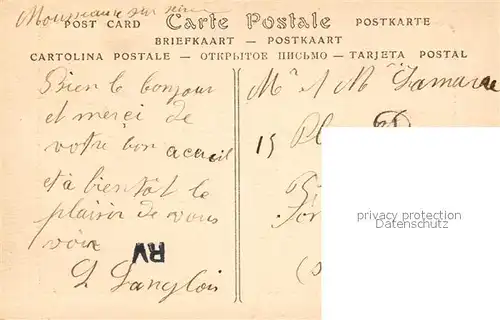 sur
POST CARD Carte Postale POSTKARTE
BRIEFKAART — POSTKAART
CARTOLINA POSTALE — ОТКРЫТОЕ ПИСЬМО — TARJETA POSTAL
Bien le bonjour
et merci de
votre bon accueil
et à bientôt le
plaisir de vous
voir
L Langlois
RV
Mr et Mme Lamarre
15 Pl
privacy protection
Datenschutz